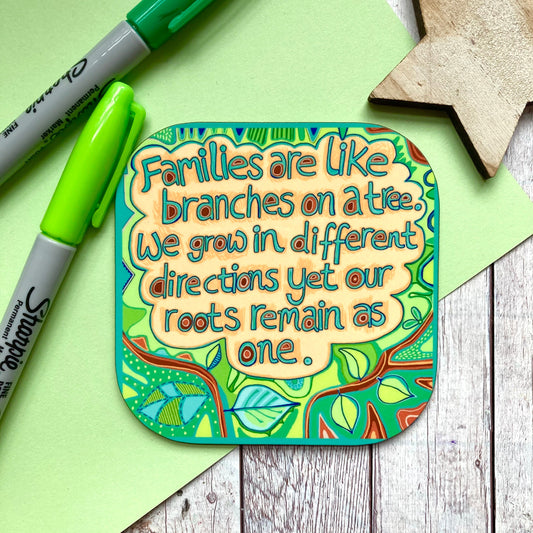 Sharpie
FINE
Permanent Marker
Sharpie
Permanent Marker
FINE
Families are like
branches on a tree.
We grow in different
directions yet our
roots remain as
one.